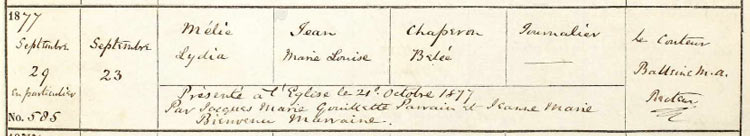 1877
Septembre
29
en particulier
No. 585
Septembre
23
Mélie
Lydia
Jean
Marie Louise
Chaperon
Belée
Journalier
le Couteur
Balleine M.A.
Recteur
Présenté à l'Eglise le 21e Octobre 1877
Par Jacques Marie Gouillette Parrain et Jeanne Marie
Bienvenu Marraine.